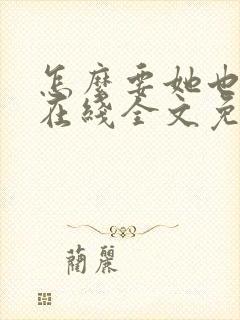 怎麼要她也
在綫全文免
蔺麗